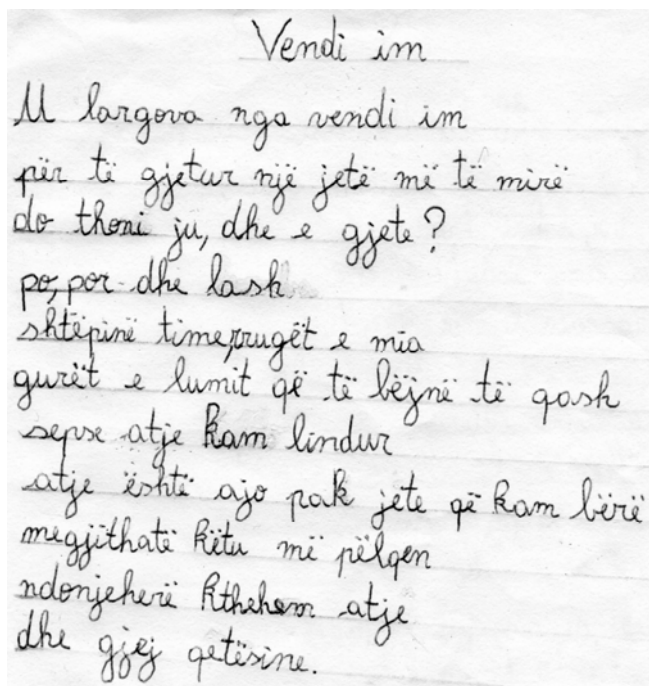 Vendi im
U largova nga vendi im
për të gjetur një jetë më të mirë
do thoni ju, dhe e gjete?
po, por dhe lash
shtëpinë time, rrugët e mia
gurët e lumit që të bëjnë të qash
sepse atje kam lindur
atje është ajo pak jete që kam bërë
megjithatë këtu më pëlqen
ndonjeherë kthehem atje
dhe gjej qetësine.